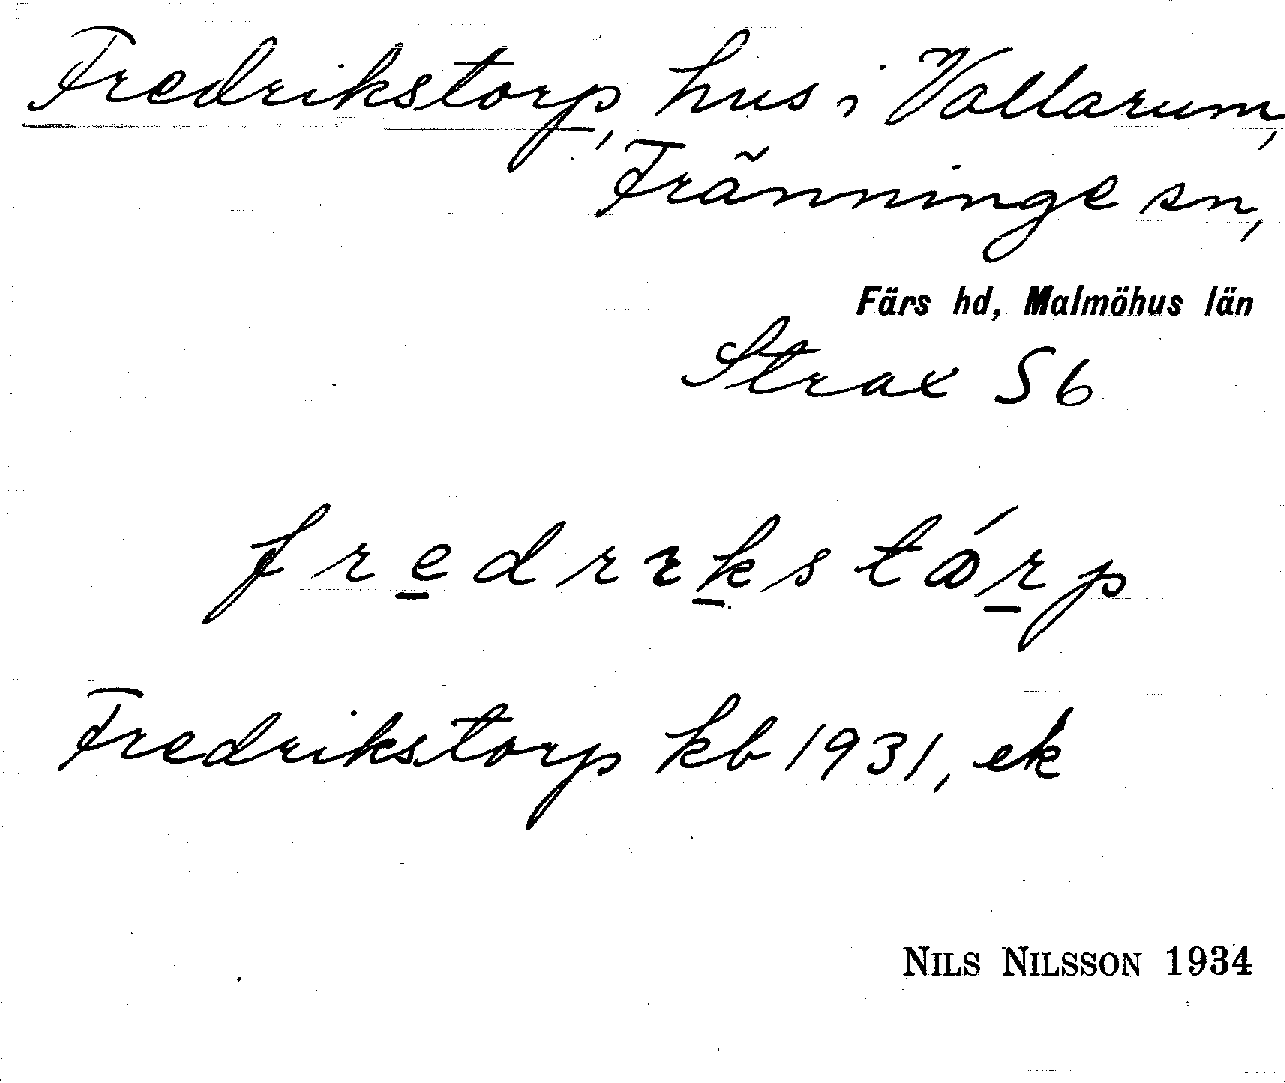 Fredrikstorp, hus i Vallarum,
Fränninge sn,
Färs hd, Malmöhus län
Strax S 6
fre̲drɩk̲stór̲p
Fredrikstorp kb 1931, ek
NILS NILSSON 1934